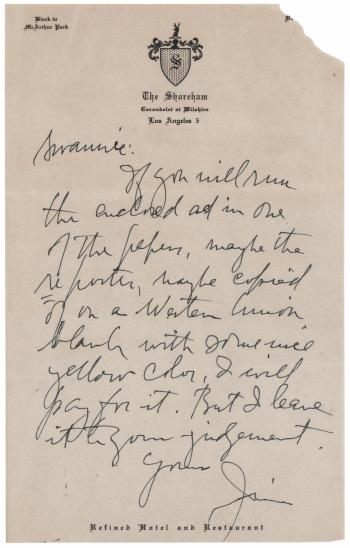 Block to
McArthur Park
S
The Shoreham
Carondelet at Wilshire
Los Angeles 5
Swannie:
If you will run
the enclosed ad in one
of the papers, maybe the
reporter, maybe copied
on a Western Union
blank with some nice
yellow color, I will
pay for it. But I leave
it to your judgement.
Yours
Jim
Refined Hotel and Restaurant